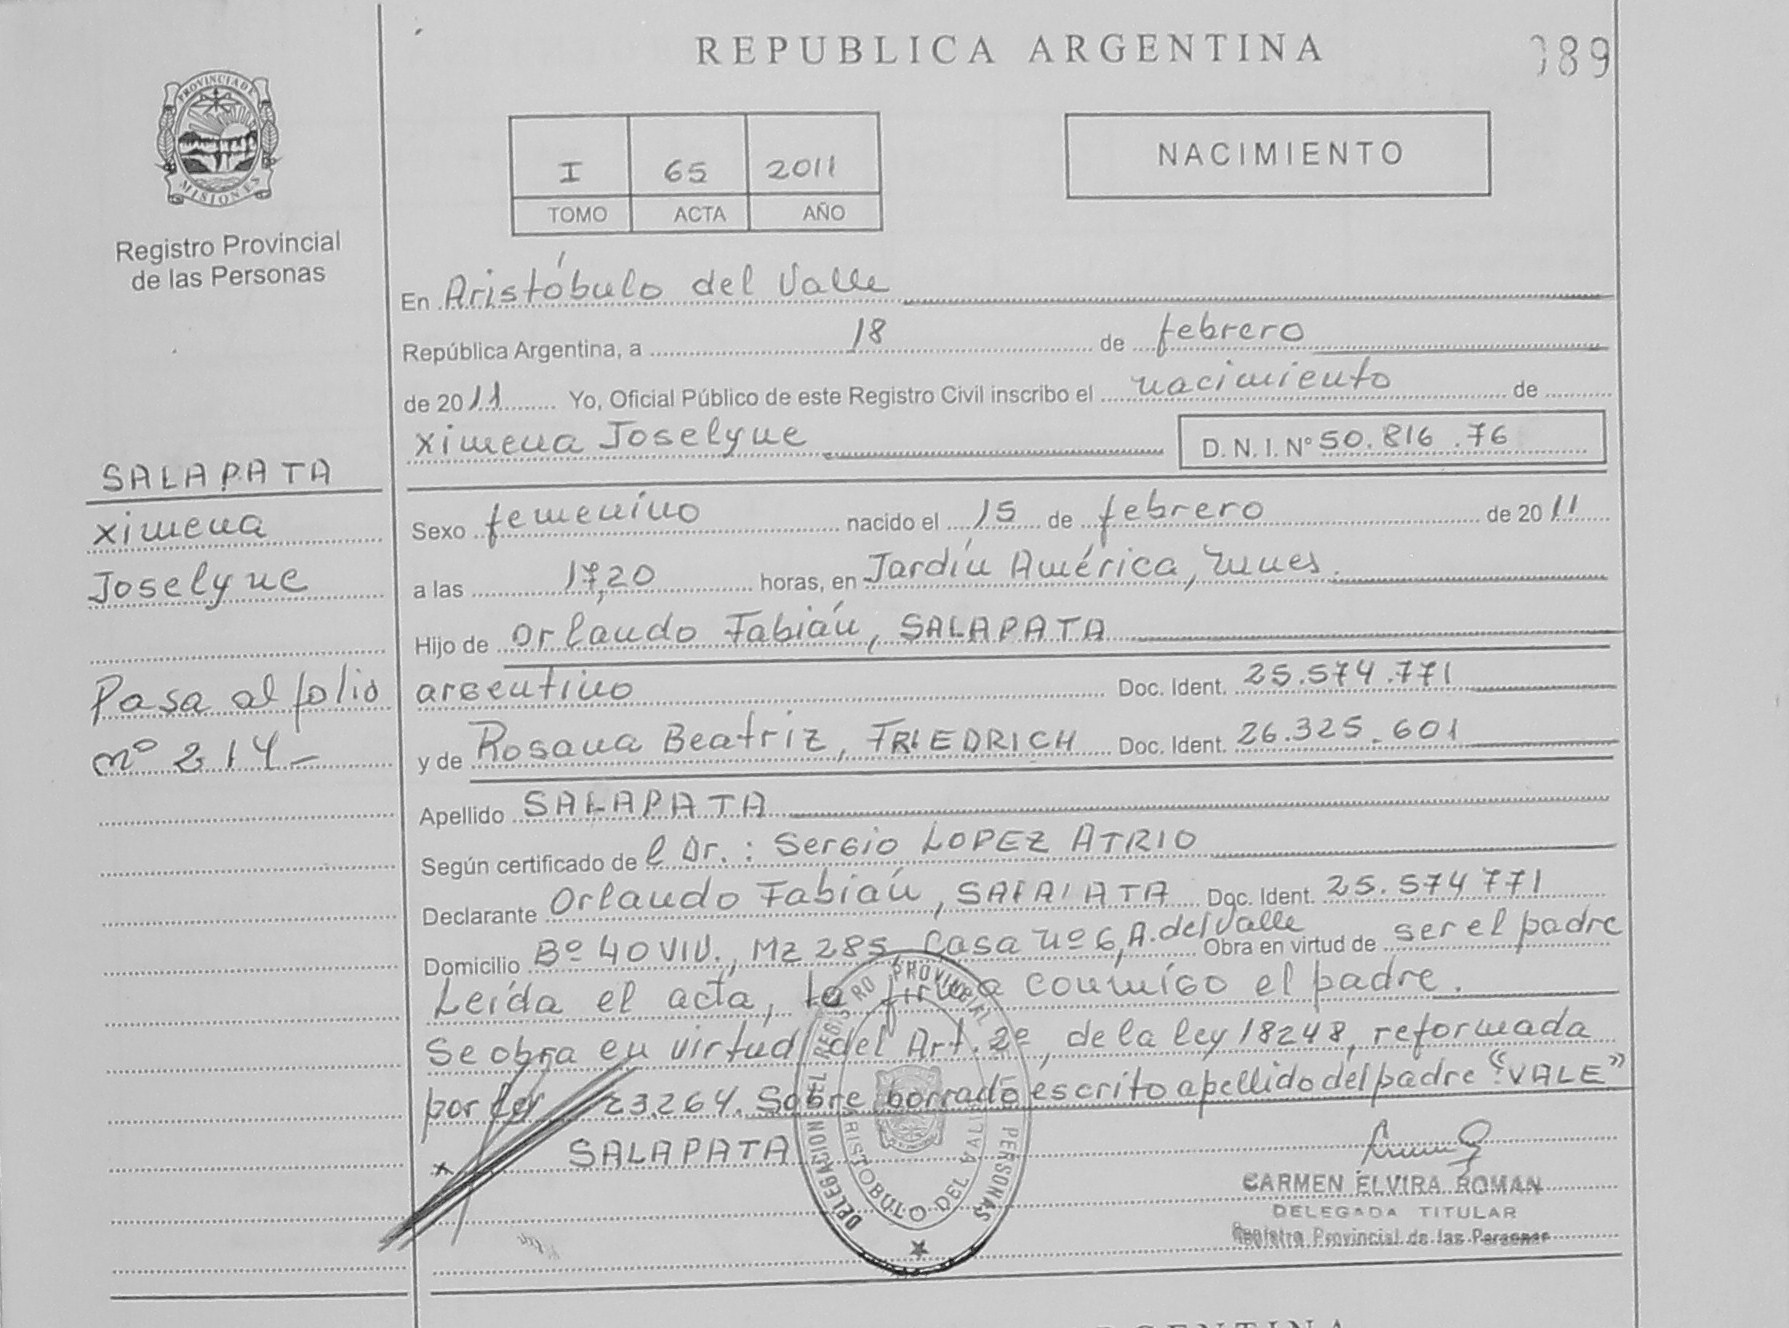 REPUBLICA ARGENTINA
089
PROVINCIA DE
MISIONES
Registro Provincial
de las Personas
I 65 2011
TOMO ACTA AÑO
NACIMIENTO
En Aristóbulo del Valle
República Argentina, a 18 de febrero
de 2011 Yo, Oficial Público de este Registro Civil inscribo el nacimiento de
Ximena Joselyne D. N. I. Nº 50.816.76
SALAPATA
Ximena
Joselyne
Pasa al folio
nº 214-
Sexo femenino nacido el 15 de febrero de 2011
a las 17,20 horas, en Jardín América, Mnes.
Hijo de Orlando Fabián, SALAPATA
argentino Doc. Ident. 25.574.771
y de Rosana Beatriz, FRIEDRICH Doc. Ident. 26.325.601
Apellido SALAPATA
Según certificado de l Dr.: Sergio LOPEZ ATRIO
Declarante Orlando Fabián, SALAPATA Doc. Ident. 25.574 771
Domicilio Bº 40 VIV., Mz 285, Casa Nº 6, A. del Valle Obra en virtud de ser el padre
Leída el acta, la firma conmigo el padre.
Se obra en virtud del Art. 2º, de la ley 18248, reformada
por ley 23.264. Sobre borrado escrito apellido del padre "VALE"
SALAPATA
DELEGACION DEL REGISTRO PROVINCIAL DE LAS PERSONAS
ARISTOBULO DEL VALLE
CARMEN ELVIRA ROMAN
DELEGADA TITULAR
Registro Provincial de las Personas
ARGENTINA